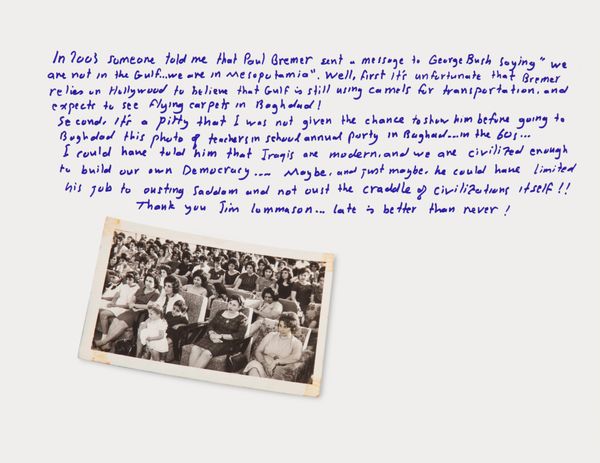 In 2003 someone told me that Paul Bremer sent a message to George Bush saying " we
are not in the Gulf...we are in Mesopotamia". Well, first it's unfortunate that Bremer
relies on Hollywood to believe that Gulf is still using camels for transportation, and
expects to see flying carpets in Baghdad!
Second, it's a pitty that I was not given the chance to show him before going to
Baghdad this photo of teachers in school annual party in Baghad....in the 60s...
I could have told him that Iraqis are modern, and we are civilized enough
to build our own Democracy.... Maybe, and just maybe, he could have limited
his job to ousting Saddam and not oust the craddle of civilizations itself!!
Thank you Jim Lommason... late is better than never!